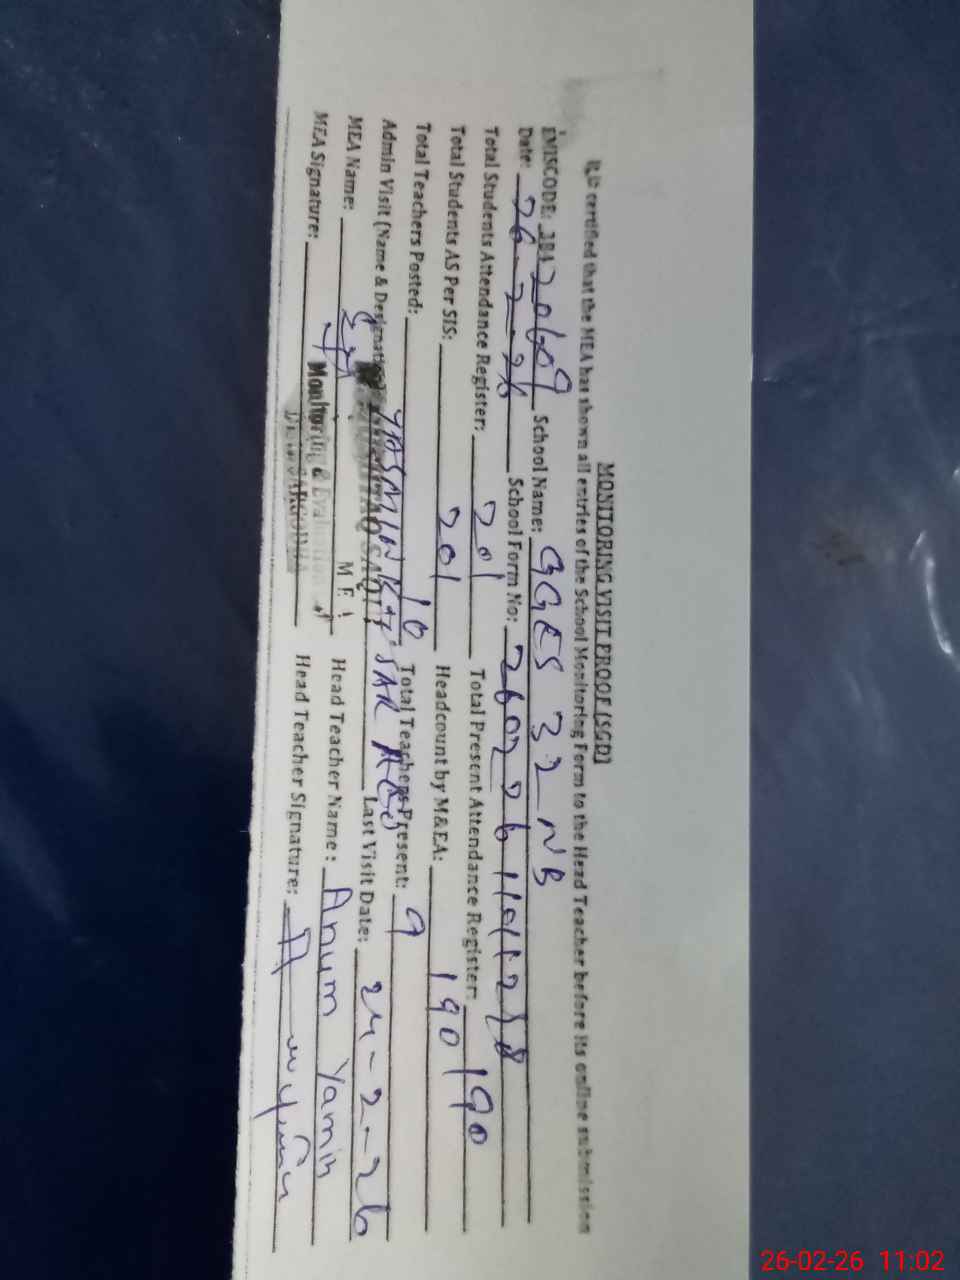 MONITORING VISIT PROOF [SGD]
It is certified that the MEA has shown all entries of the School Monitoring Form to the Head Teacher before its online submission
EMISCODE: 38420609 School Name: GGES 32 NB
Date: 26-2-26 School Form No:
Total Students Attendance Register: 201 Total Present Attendance Register: 190
Total Students AS Per SIS: 201 Headcount by M&EA: 190
Total Teachers Posted: 10 Total Teachers Present: 9
Admin Visit (Name & Designation YASMIN KAUSAR AEO Last Visit Date: 24-2-26
MEA Name: Head Teacher Name: Anum Yamin
MEA Signature: Monitoring & Evaluation Head Teacher Signature:
SARGODHA
26-02-26 11:02